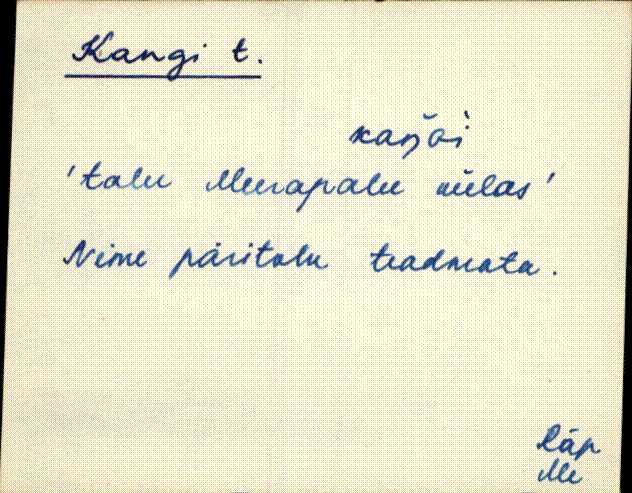 Kangi t.
'talu Meerapalu külas'
Nime päritolu teadmata.
Räp
Me